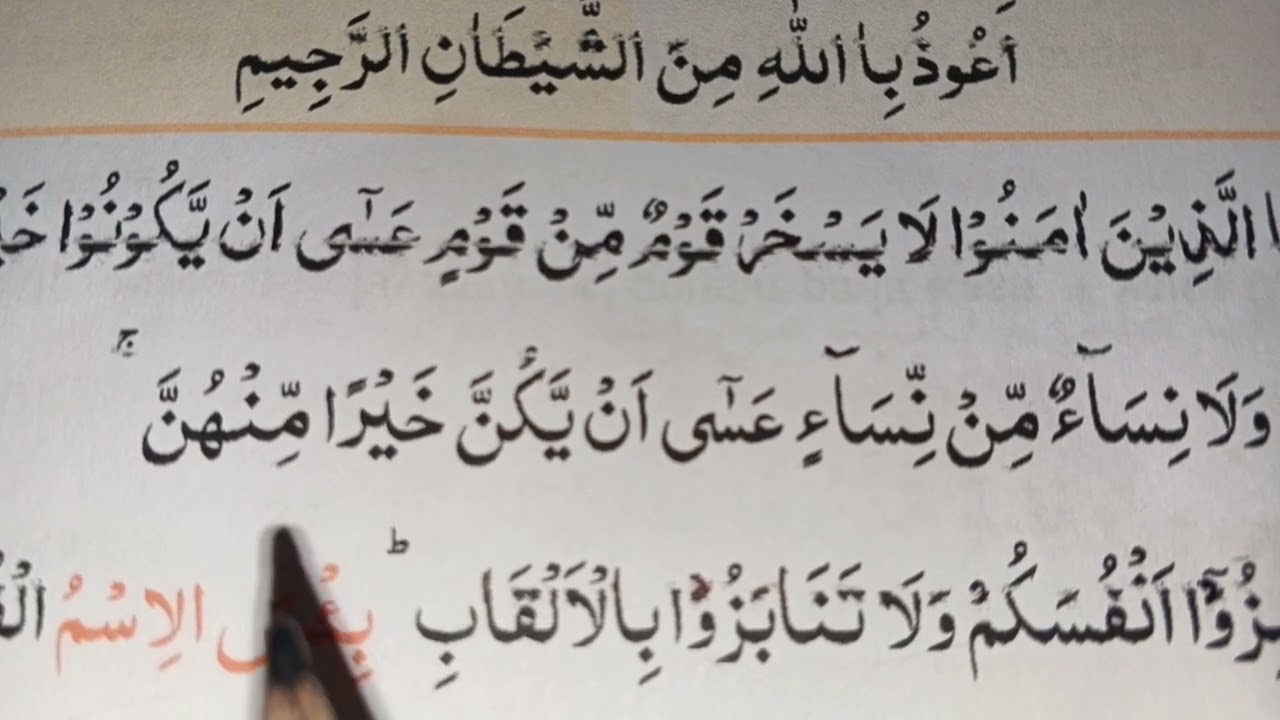 أَعُوْذُ بِاللّٰهِ مِنَ الشَّيْطَانِ الرَّجِيمِ
الَّذِيْنَ اٰمَنُوْا لَا يَسْخَرْ قَوْمٌ مِّنْ قَوْمٍ عَسٰٓى اَنْ يَّكُوْنُوْا
وَلَا نِسَآءٌ مِّنْ نِّسَآءٍ عَسٰٓى اَنْ يَّكُنَّ خَيْرًا مِّنْهُنَّ ۚ
اَنْفُسَكُمْ وَلَا تَنَابَزُوْا بِالْاَلْقَابِ ؕ الِاسْمُ